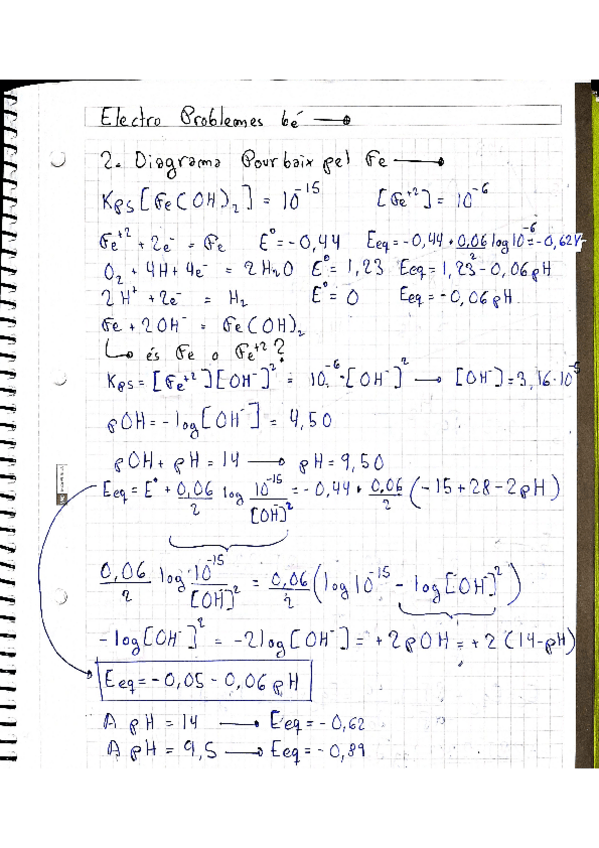 Electro Problemes bé →
2. Diagrama Pourbaix pel Fe →
Kps[Fe(OH)₂] = 10⁻¹⁵ [Fe⁺²] = 10⁻⁶
Fe⁺² + 2e⁻ = Fe E° = -0,44 Eeq = -0,44 + 0,06/2 log 10⁻⁶ = -0,62V
O₂ + 4H + 4e⁻ = 2H₂O E° = 1,23 Eeq = 1,23 - 0,06pH
2H⁺ + 2e⁻ = H₂ E° = 0 Eeq = -0,06pH
Fe + 2OH⁻ = Fe(OH)₂
↳ és Fe o Fe⁺²?
Kps = [Fe⁺²][OH⁻]² = 10⁻⁶·[OH⁻]² → [OH⁻] = 3,16·10⁻⁵
pOH = -log[OH⁻] = 4,50
pOH + pH = 14 → pH = 9,50
Eeq = E° + 0,06/2 log 10⁻¹⁵/[OH⁻]² = -0,44 + 0,06/2 (-15 + 28 - 2pH)
0,06/2 log 10⁻¹⁵/[OH⁻]² = 0,06/2 (log 10⁻¹⁵ - log[OH⁻]²)
-log[OH⁻]² = -2log[OH⁻] = +2pOH = +2(14-pH)
Eeq = -0,05 - 0,06pH
A pH = 14 → Eeq = -0,62
A pH = 9,5 → Eeq = -0,89